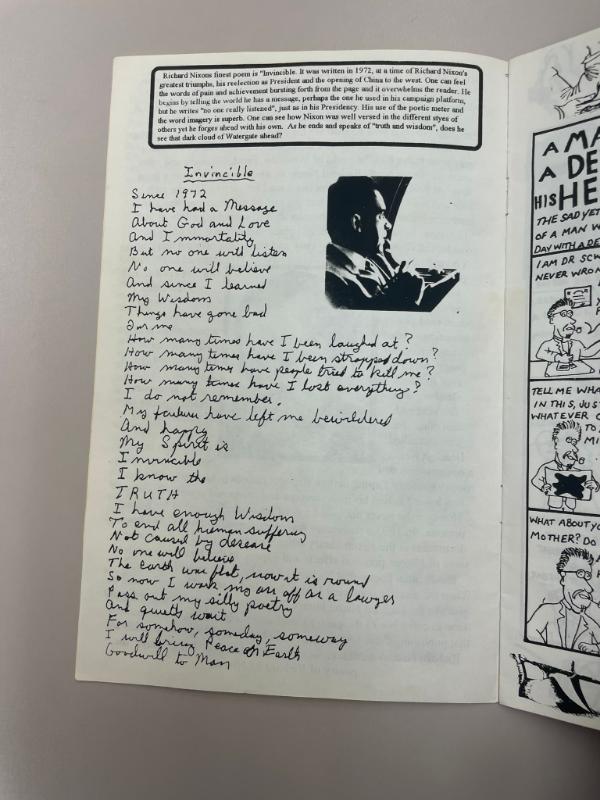 Richard Nixons finest poem is "Invincible. It was written in 1972, at a time of Richard Nixon's
greatest triumphs, his reelection as President and the opening of China to the west. One can feel
the words of pain and achievement bursting forth from the page and it overwhelms the reader. He
begins by telling the world he has a message, perhaps the one he used in his campaign platform,
but he writes "no one really listened", just as in his Presidency. His use of the poetic meter and
the word imagery is superb. One can see how Nixon was well versed in the different styes of
others yet he forges ahead with his own. As he ends and speaks of "truth and wisdom", does he
see that dark cloud of Watergate ahead?
Invincible
Since 1972
I have had a Message
About God and Love
And Immortality
But no one will listen
No one will believe
And since I learned
My Wisdom
Things have gone bad
For me
How many times have I been laughed at?
How many times have I been strapped down?
How many times have people tried to kill me?
How many times have I lost everything?
I do not remember.
My failures have left me bewildered
And happy
My Spirit is
Invincible
I know the
TRUTH
I have enough Wisdom
To end all human suffering
Not caused by desease
No one will believe
The Earth was flat, now it is round
So now I work my ass off as a lawyer
Pass out my silly poetry
And quietly wait
For somehow, someday, someway
I will bring Peace on Earth
Goodwill to Man
A MA
A DE
HIS HE
THE SAD YET
OF A MAN W
DAY WITH A DE
I AM DR SCW
NEVER WRON
TELL ME WHA
IN THIS, JUS
WHAT EVER C
TO
MI
WHAT ABOUT YO
MOTHER? DO